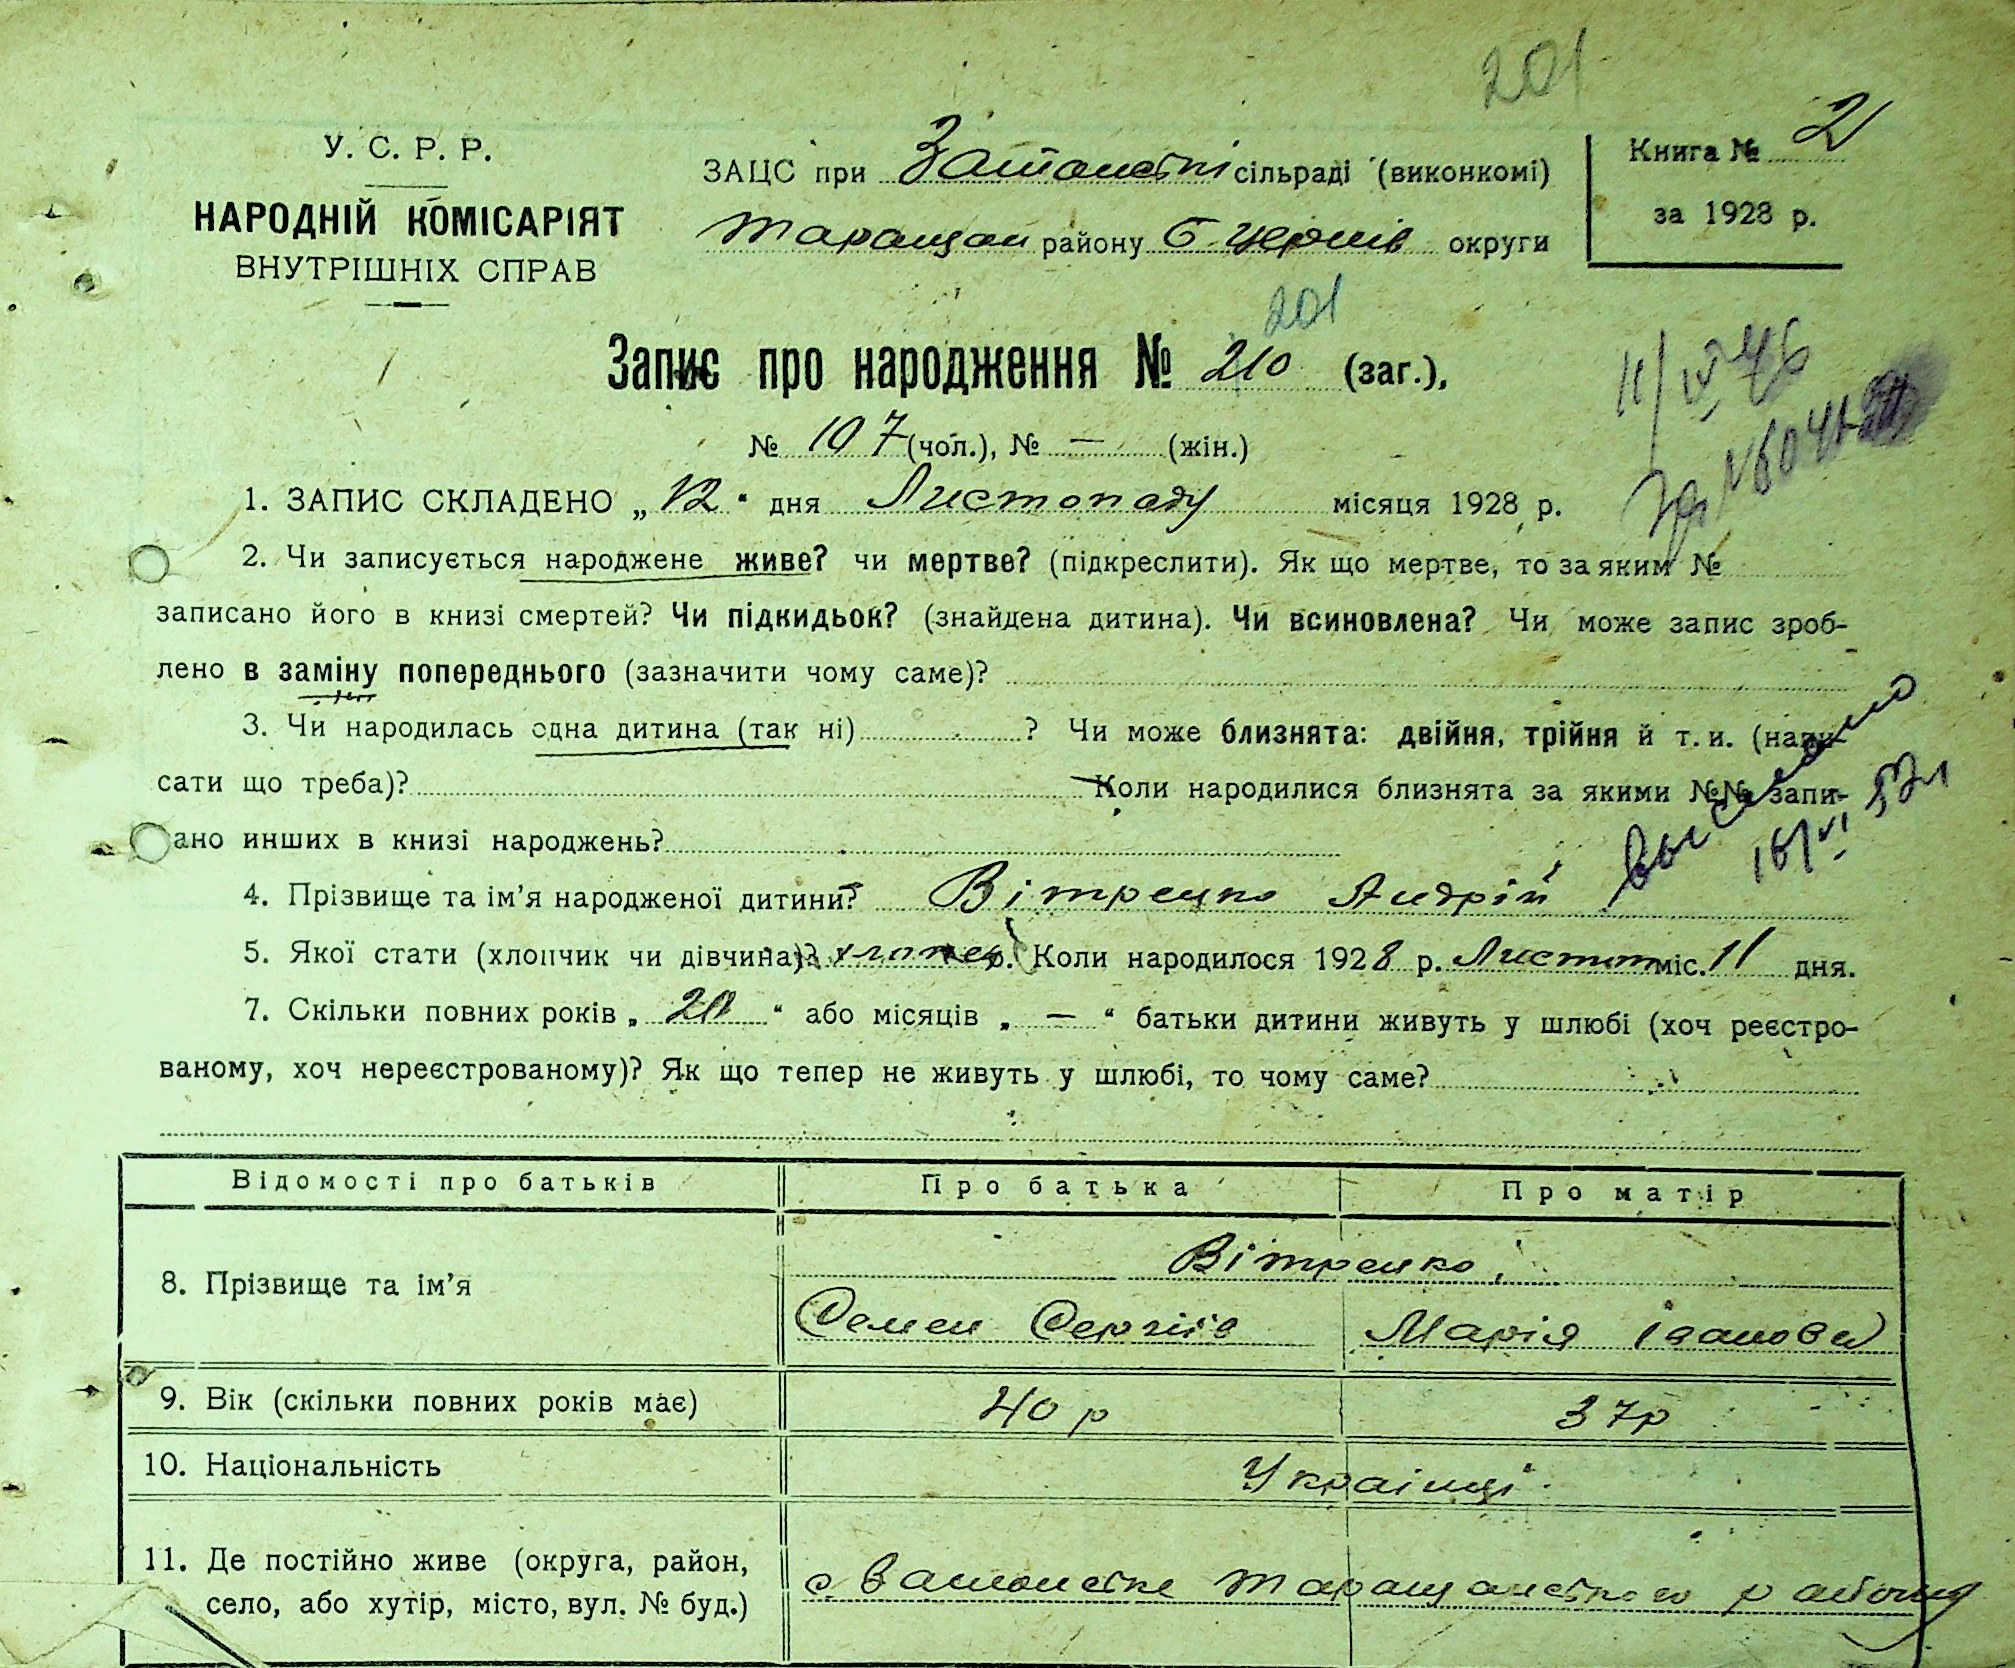 201
У. С. Р. Р.
НАРОДНІЙ КОМІСАРІЯТ
ВНУТРІШНІХ СПРАВ
ЗАЦС при сільраді (виконкомі)
Таращан району Б. Церків округи
Книга № 2
за 1928 р.
201
Запис про народження № 210 (заг.),
№ 107 (чол.), № — (жін.)
11/IV 46
1. ЗАПИС СКЛАДЕНО „12“ дня Листопаду місяця 1928 р.
2. Чи записується народжене живе? чи мертве? (підкреслити). Як що мертве, то за яким №
записано його в книзі смертей? Чи підкидьок? (знайдена дитина). Чи всиновлена? Чи може запис зроб-
лено в заміну попереднього (зазначити чому саме)?
3. Чи народилась одна дитина (так ні) ? Чи може близнята: двійня, трійня й т. и. (напи-
сати що треба)? Коли народилися близнята за якими №№ запи-
ано инших в книзі народжень?
выслано
16/VI 52
4. Прізвище та ім’я народженої дитини? Вітренко Андрій
5. Якої стати (хлопчик чи дівчина)? хлопец. Коли народилося 1928 р. Листоп міс. 11 дня.
7. Скільки повних років „20“ або місяців „—“ батьки дитини живуть у шлюбі (хоч реєстро-
ваному, хоч нереєстрованому)? Як що тепер не живуть у шлюбі, то чому саме?
Відомості про батьків Про батька Про матір
8. Прізвище та ім’я Вітренко
Семен Сергіїв Марія Іванова
9. Вік (скільки повних років має) 40 р 37р
10. Національність Українці
11. Де постійно живе (округа, район,
село, або хутір, місто, вул. № буд.)
с. Таращанського району